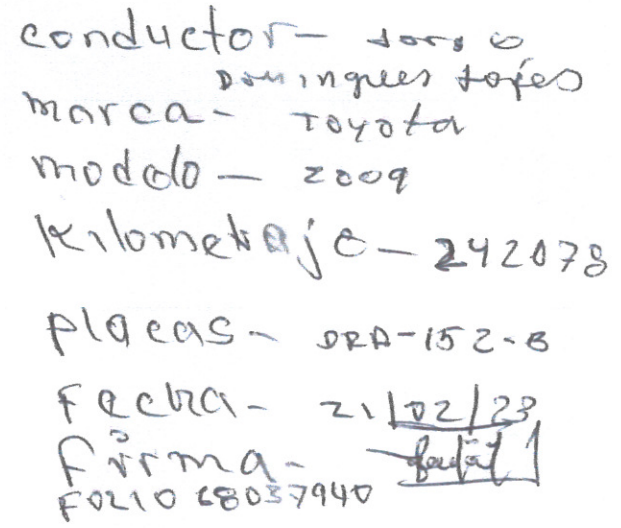 conductor-
Domingues
marca- Toyota
modelo - 2009
kilometraje - 242078
placas- DRA-152-B
Fecha- 21/02/23
firma-
F0210 68037940